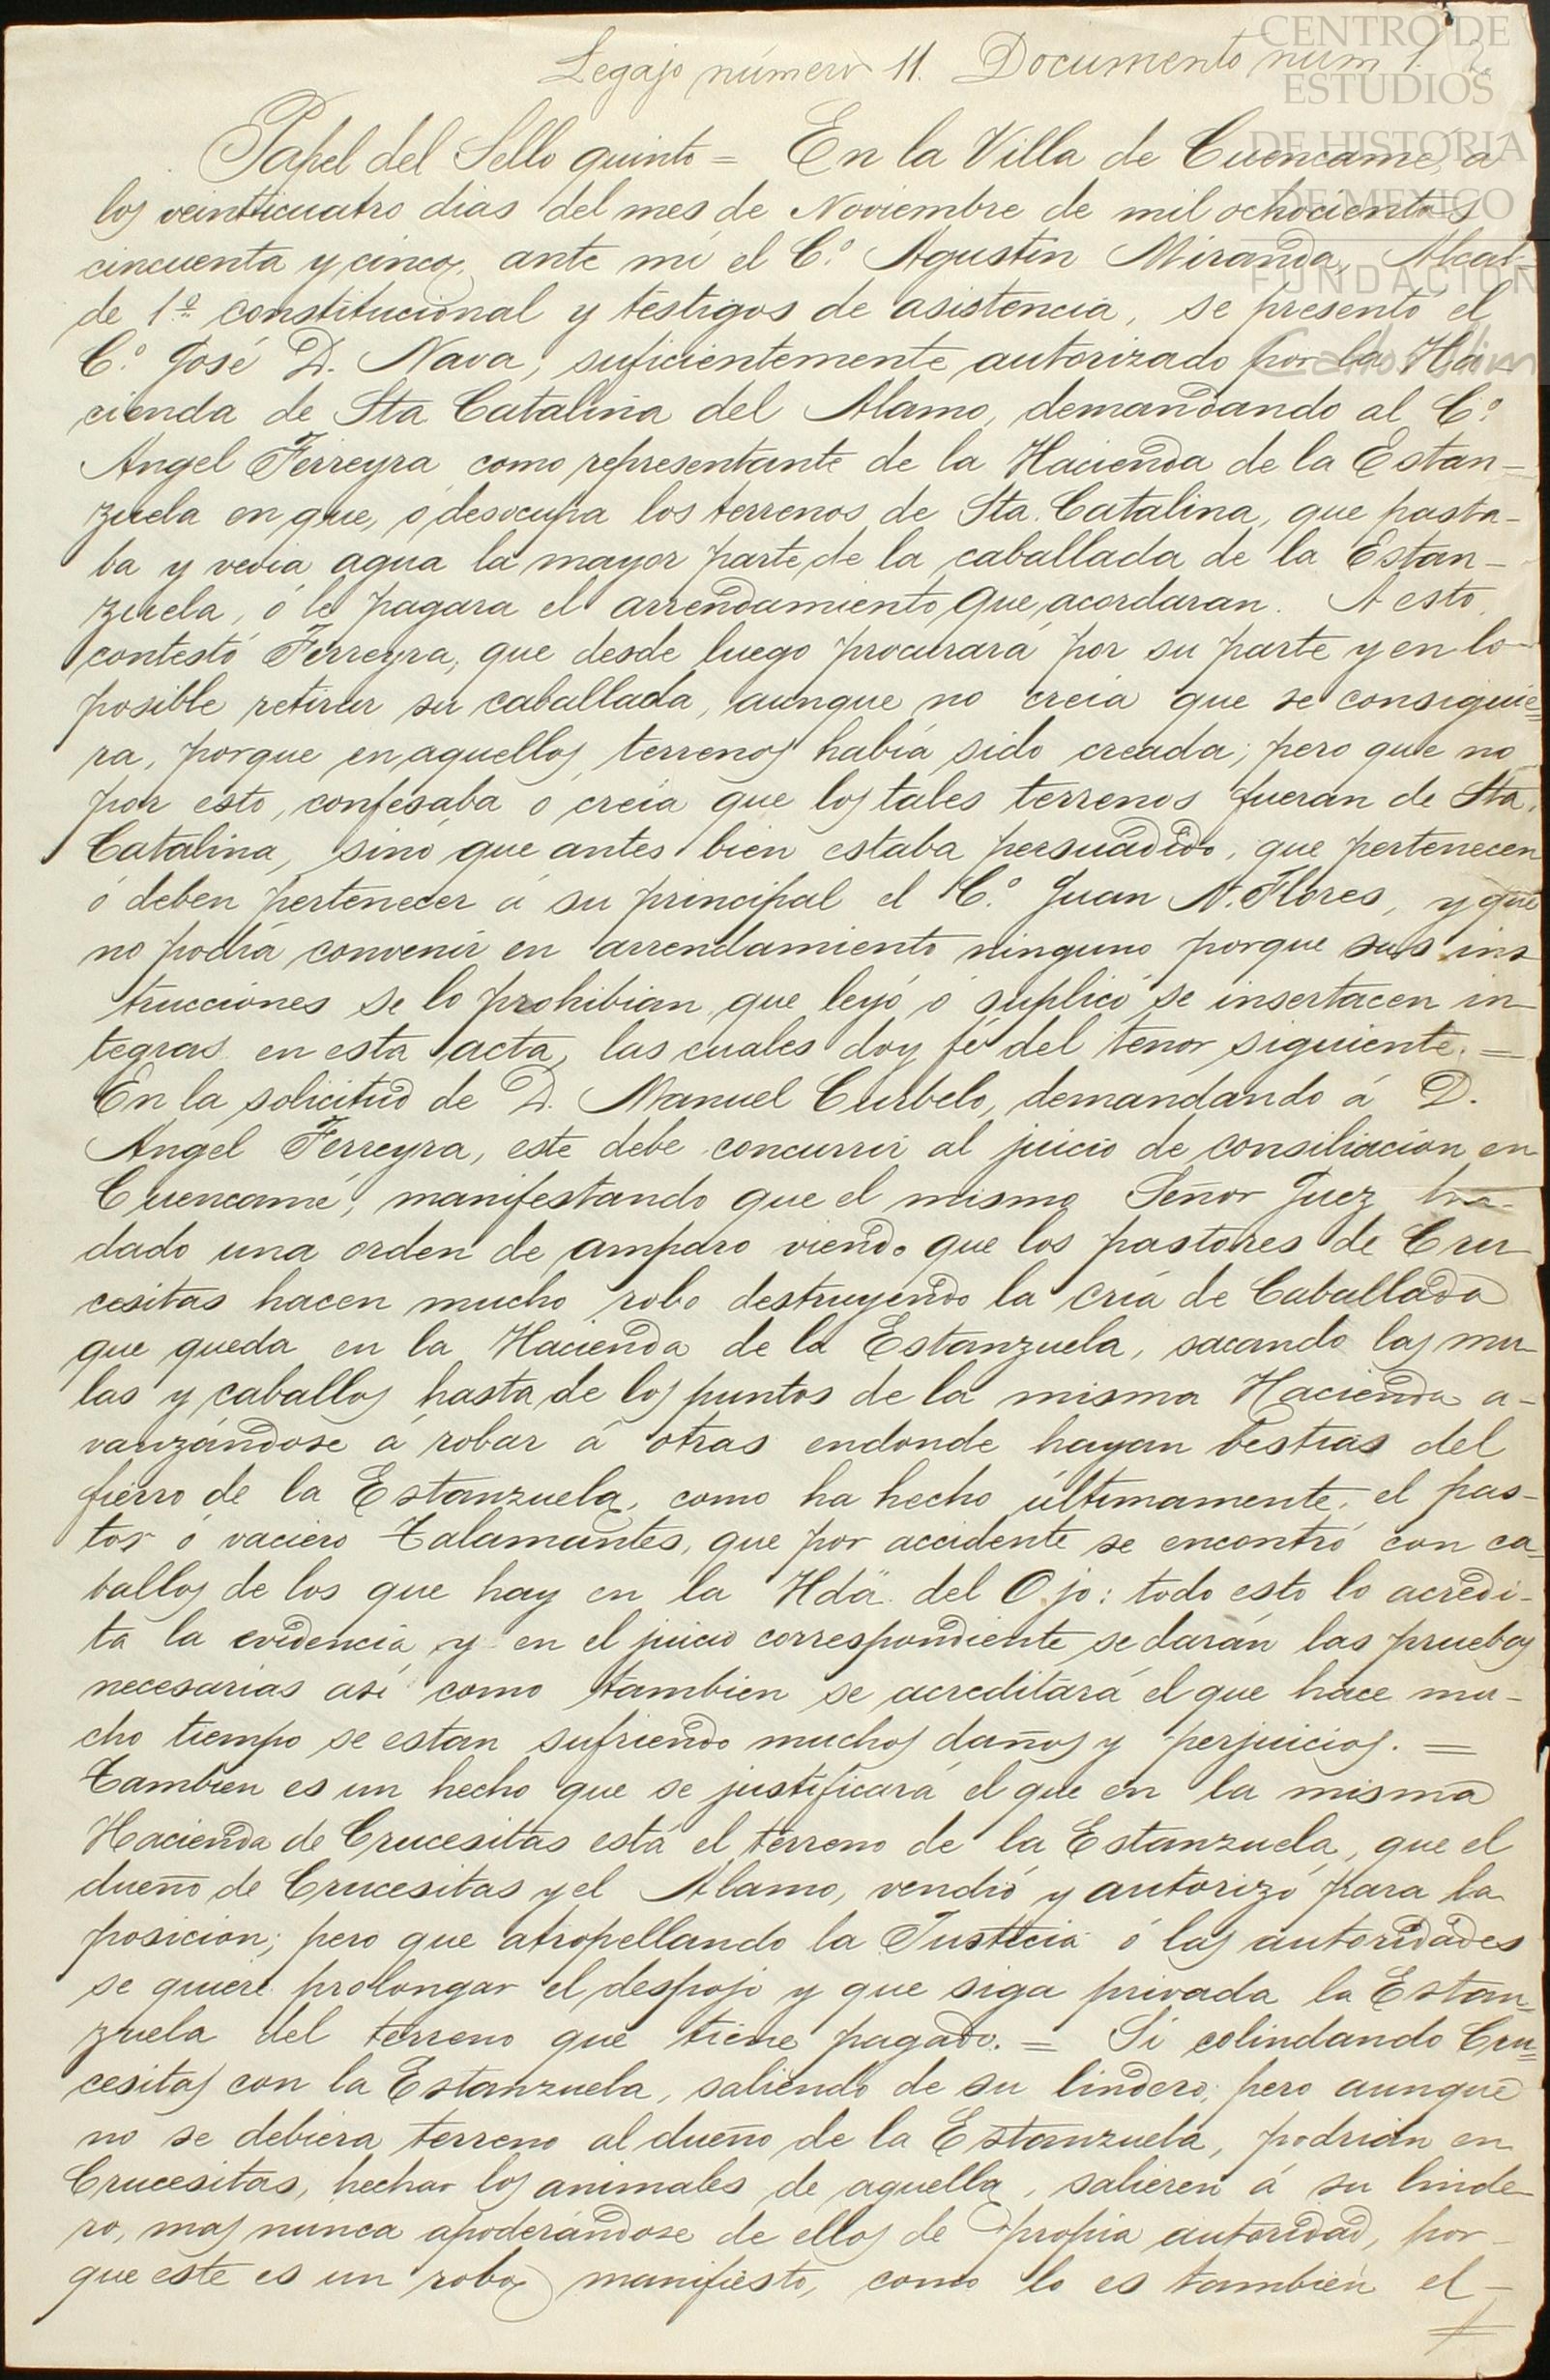 CENTRO DE
ESTUDIOS
DE HISTORIA
DE MEXICO
FUNDACIÓN
Legajo número 11. Documento núm 1.
Papel del Sello quinto = En la Villa de Cuencamé, á
los veinticuatro dias del mes de Noviembre de mil ochocientos
cincuenta y cinco, ante mi el C.º Agustin Miranda, Alcal-
de 1.º constitucional y testigos de asistencia, se presentó el
C.º José D. Nava, suficientemente autorizado por la Ha-
cienda de Sta Catalina del Alamo, demandando al C.º
Angel Ferreyra como representante de la Hacienda de la Estan-
zuela en que, ó desocupa los terrenos de Sta. Catalina, que pasta-
ba y vevia agua la mayor parte de la caballada de la Estan-
zuela, ó le pagara el arrendamiento que acordaran. A esto
contestó Ferreyra, que desde luego procurará por su parte y en lo
posible retirar su caballada, aunque no creia que se consiguie=
ra, porque en aquellos terrenos habia sido creada; pero que no
por esto, confesaba o creia que los tales terrenos fueran de Sta.
Catalina, sinó que antes bien estaba persuadido, que pertenecen
ó deben pertenecer á su principal el C.º Juan N. Flores, y que
no podia convenir en arrendamiento ninguno porque sus ins
trucciones se lo prohibian que leyó ó suplicó se insertacen in-
tegras en esta acta, las cuales doy fé del tenor siguiente. =
En la solicitud de D. Manuel Curbelo, demandando á D.
Angel Ferreyra, este debe concurrir al juicio de consiliacion en
Cuencamé, manifestando que el mismo Señor Juez ha
dado una orden de amparo viendo que los pastores de Cru-
cesitas hacen mucho robo destruyendo la cria de Caballada
que queda en la Hacienda de la Estanzuela, sacando las mu-
las y caballos hasta de los puntos de la misma Hacienda a-
vanzándose á robar á otras endonde hayan bestias del
fierro de la Estanzuela, como ha hecho últimamente, el pas-
tor ó vaciero Talamantes, que por accidente se encontró con ca-
ballos de los que hay en la Hdä. del Ojo: todo esto lo acredi-
ta la evidencia y en el juicio correspondiente se darán las pruebas
necesarias asi como tambien se acreditará el que hace mu-
cho tiempo se estan sufriendo muchos daños y perjuicios. =
Tambien es un hecho que se justificará el que en la misma
Hacienda de Crucesitas está el terreno de la Estanzuela, que el
dueño de Crucesitas y el Alamo, vendió y autorizó para la
posicion; pero que atropellando la Justicia ó las autoridades
se quiere prolongar el despojo y que siga privada la Estan-
zuela del terreno que tiene pagado. = Si colindando Cru=
cesitas con la Estanzuela, saliendo de su lindero; pero aunque
no se debiera terreno al dueño de la Estanzuela, podrian en
Crucesitas, hechar los animales de aquella, salieren á su linde-
ro, mas nunca apoderándose de ellos de propia autoridad, por-
que este es un robo manifiesto, como lo es tambien el-